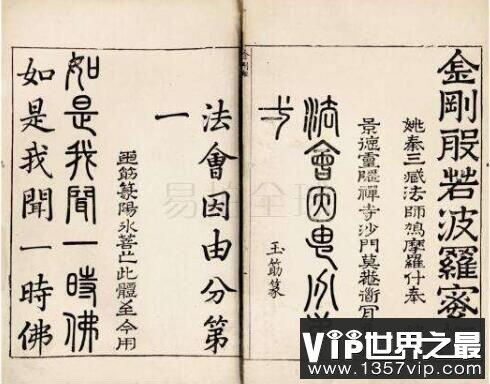 金剛般若波羅蜜
姚秦三藏法師鳩摩羅什奉
景德靈隱禪寺沙門莫菴道
法會因由分第
一
玉筯篆
法會因由分第
一
玉筯篆陽氷善之此體至今用
如是我聞一時佛
如是我聞一時佛
VIP世界之最
www.1357vip.com